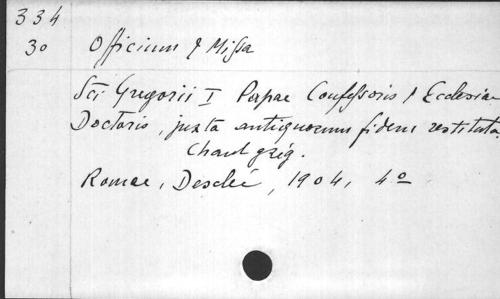 334
30 Officium & Missa
Sci Gregorii I Papae Confessoris & Ecclesiae
Doctoris, juxta antiquorum fidem restituta.
Chant grég.
Romae, Desclée, 1904, 4o